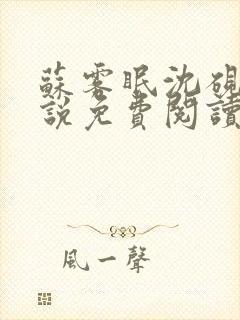 蘇雾眠沈硯
說免費閱讀
風一聲